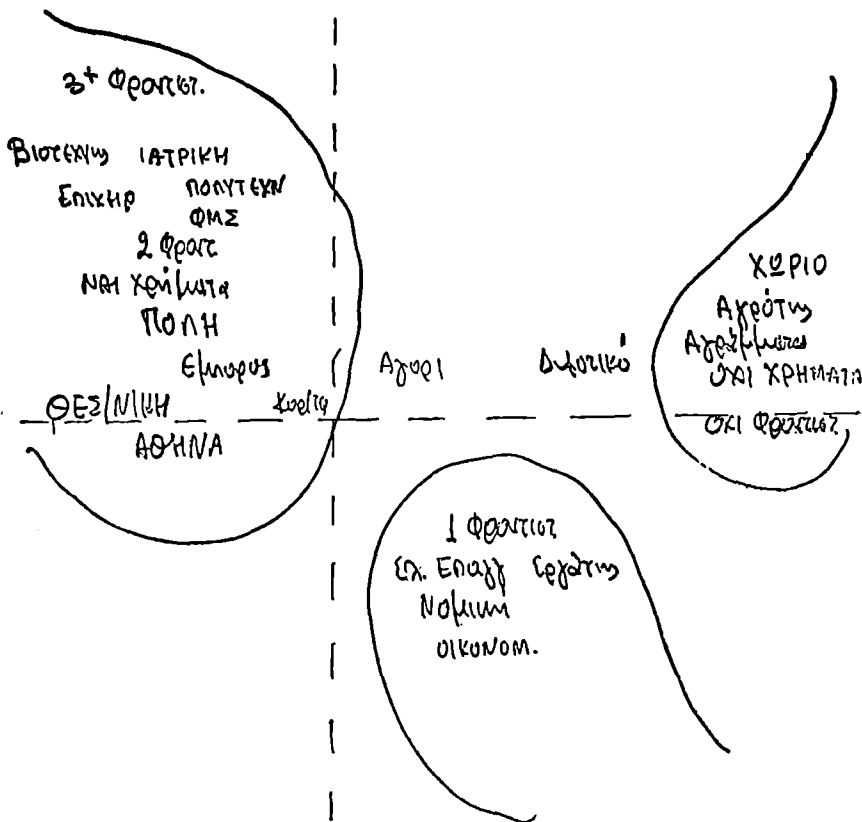 3+ Φροντιστ.
Βιοτέχνης ΙΑΤΡΙΚΗ
Επιχηρ ΠΟΛΥΤΕΧΝ
ΦΜΣ
2 Φροντ
ΝΑΙ χρήματα
ΠΟΛΗ
Εμπορος
ΘΕΣ/ΝΙΚΗ
ΑΘΗΝΑ
Αγορι
Δημοτικό
ΧΩΡΙΟ
Αγρότης
Αγράμματος
ΟΧΙ ΧΡΗΜΑΤΑ
ΟΧΙ Φροντιστ.
1 Φροντιστ
Ελ. Επαγγ Εργάτης
Νομικη
ΟΙΚΟΝΟΜ.